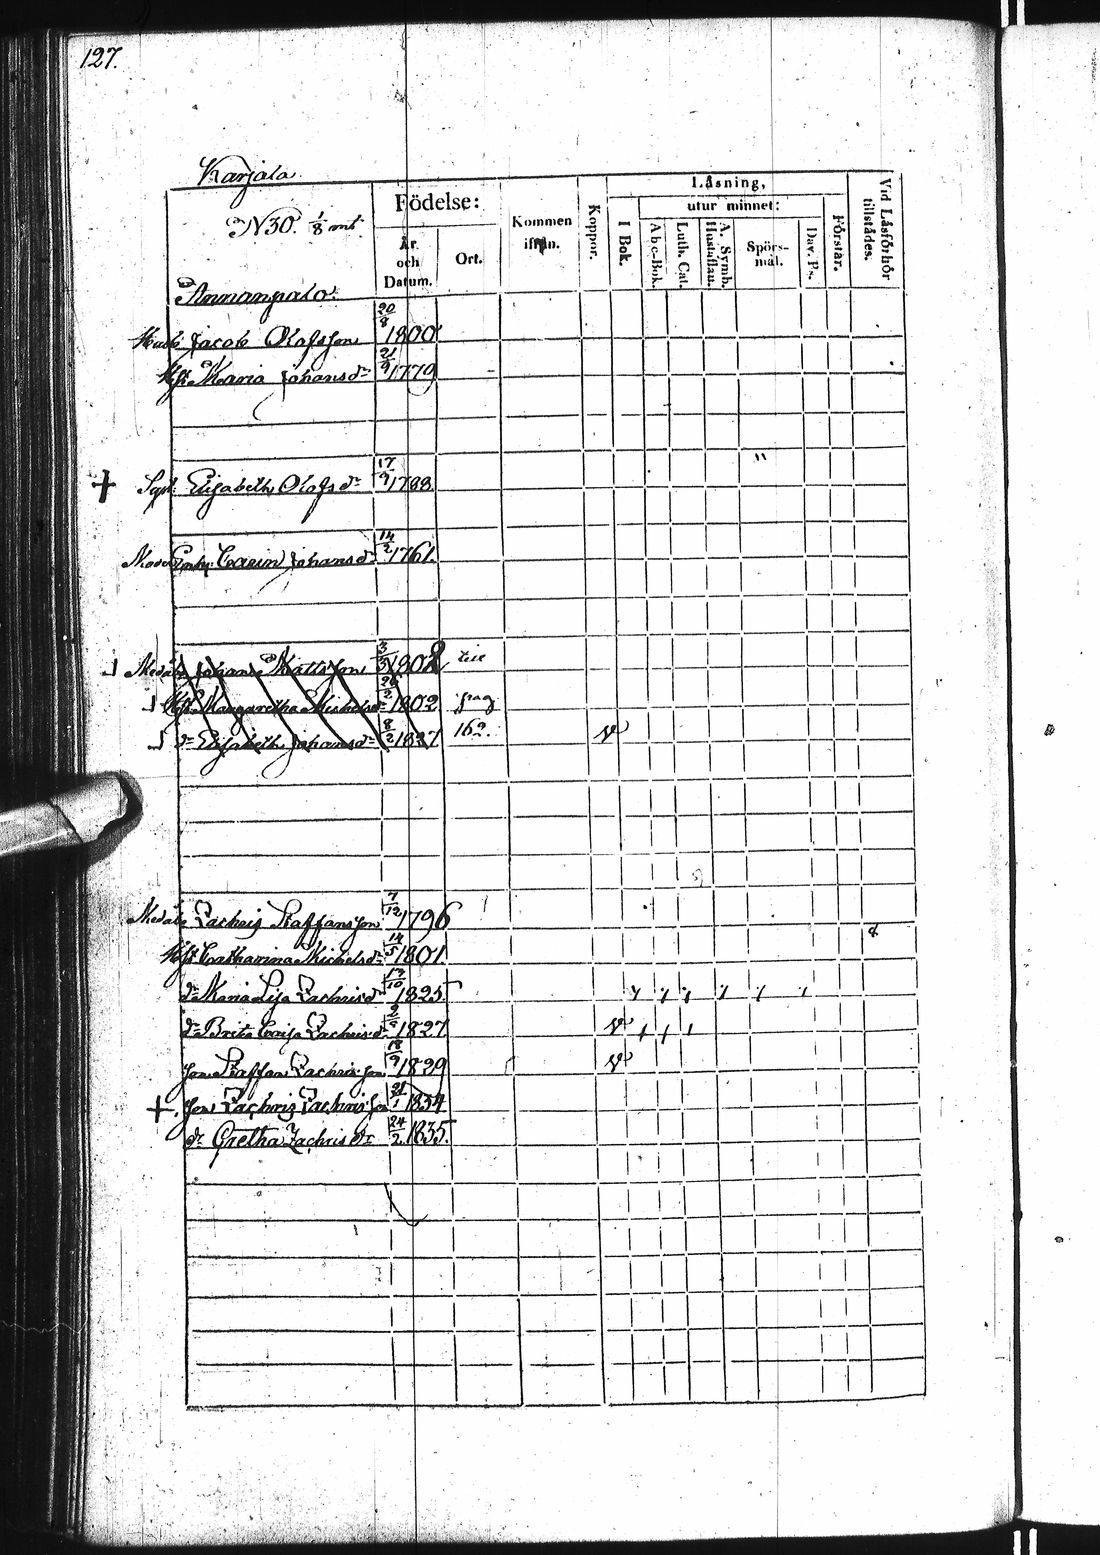 127.
Karjala
N 30. 1/8 mtl.
Födelse:
År och Datum.
Ort.
Kommen ifrån.
Koppor.
Låsning,
utur minnet:
I Bok.
Abc-Bok.
Luth. Cat.
A. Symb. Hustaflan.
Spörs-mål.
Dav. Ps.
Förstår.
Vid Låsförhör tillstådes.
Annanpalo
Jacob Olofsson 20/8 1800
Hst. Maria Johansdr 21/9 1779
+ Elisabeth Olofsdr 17/9 1788
Carin Johansdr 14/2 1761.
Johan Mattsson 3/3 1802 till
Hst. Margaretha Michelsdr 1802 pag
dr Elisabeth Johansdr 8/2 1827 162. v
Zachris Staffansson 7/12 1796
Hst. Catharina Michelsdr 14/5 1801
dr Maria Lisa Zachrisdr /10 1825
dr Brita Cajsa Zachrisdr 1827 v
son Staffan Zachrisson 18/9 1829 v
+ son Zachris Zachrisson 21/1 1834
dr Gretha Zachrisdr 24/2 1835.